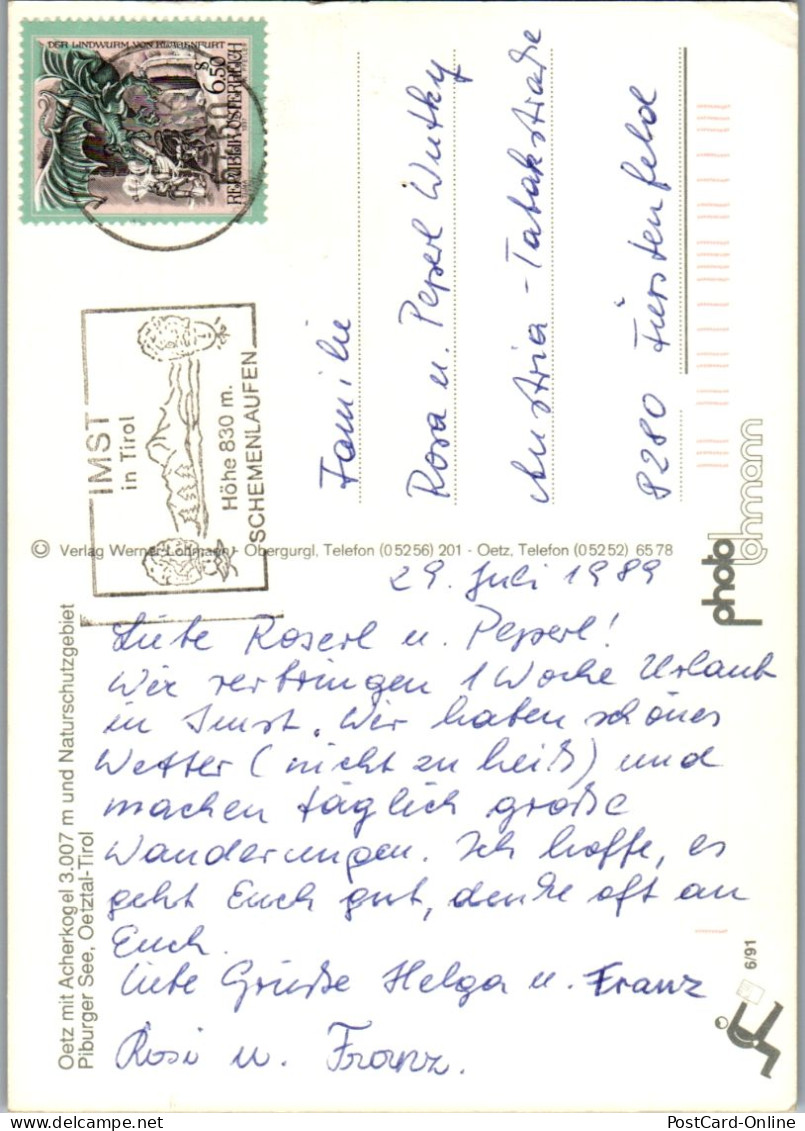 DER LINDWURM VON KLAGENFURT
S 6.50
REPUBLIK ÖSTERREICH
IMST
in Tirol
Höhe 830 m.
SCHEMENLAUFEN
Familie
Rosa u. Peperl Wutky
Austria-Tabakstraße
8280 Fürstenfeld
© Verlag Werner Lohmann - Obergurgl, Telefon (05256) 201 - Oetz, Telefon (05252) 6578
photo lohmann
Oetz mit Acherkogel 3.007 m und Naturschutzgebiet
Piburger See, Oetztal-Tirol
29. Juli 1989
Liebe Roserl u. Peperl!
Wir verbringen 1 Woche Urlaub
in Imst. Wir haben schönes
Wetter (nicht zu heiß) und
machen täglich große
Wanderungen. Ich hoffe, es
geht Euch gut, denke oft an
Euch.
Liebe Grüße Helga u. Franz
Rosi u. Franz.
6/91
PostCard-Online